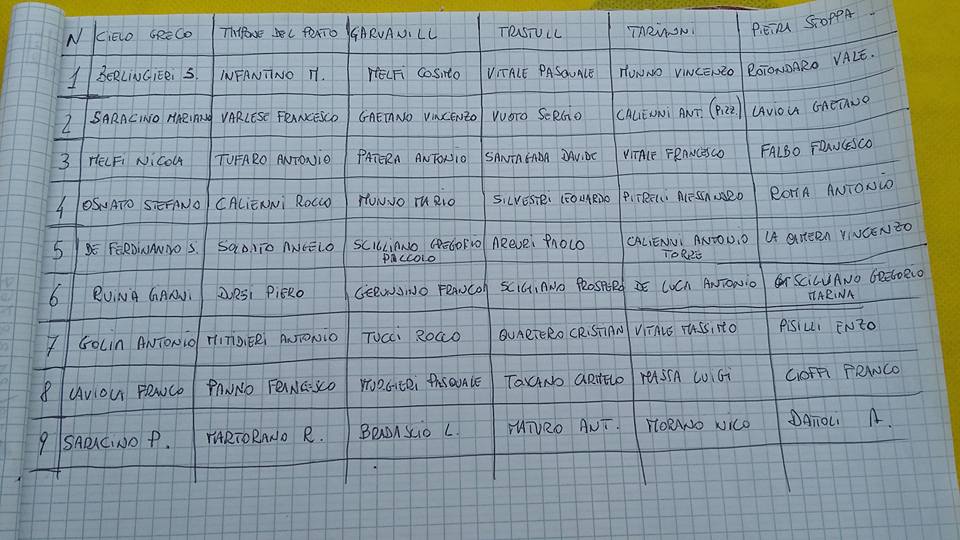 N CIELO GRECO TIMPONE DEL PRATO GARVANILL TRASTULL TARIANNI PIETRA STOPPA
1 BERLINGIERI S. INFANTINO M. MELFI COSIMO VITALE PASQUALE MUNNO VINCENZO ROTONDARO VALE.
2 SARACINO MARIANO VARLESE FRANCESCO GAETANO VINCENZO VUOTO SERGIO CALIENNI ANT. (PIZZ.) LAVIOLA GAETANO
3 MELFI NICOLA TUFARO ANTONIO PATERA ANTONIO SANTAGADA DAVIDE VITALE FRANCESCO FALBO FRANCESCO
4 OSNATO STEFANO CALIENNI ROCCO MUNNO MARIO SILVESTRI LEONARDO PITRELLI ALESSANDRO ROMA ANTONIO
5 DE FERDINANDO S. SOLDATO ANGELO SCIGLIANO GREGORIO PICCOLO AREURI PAOLO CALIENNI ANTONIO TORRE LA VINCENZO
6 RUINA GANNI DURSI PIERO GERUNDINO FRANCO SCIGLIANO PROSPERO DE LUCA ANTONIO SCIGLIANO GREGORIO MARINA
7 GOLIA ANTONIO MITIDIERI ANTONIO TUCCI ROCCO QUARTERO CRISTIAN VITALE MASSIMO PISILLI ENZO
8 LAVIOLA FRANCO PANNO FRANCESCO MURGIERI PASQUALE TOSCANO CARMELO MASSA LUIGI CIOFFI FRANCO
9 SARACINO P. MARTORANO R. BRADASCIO L. MATURO ANT. MORANO NICO DATTOLI A.